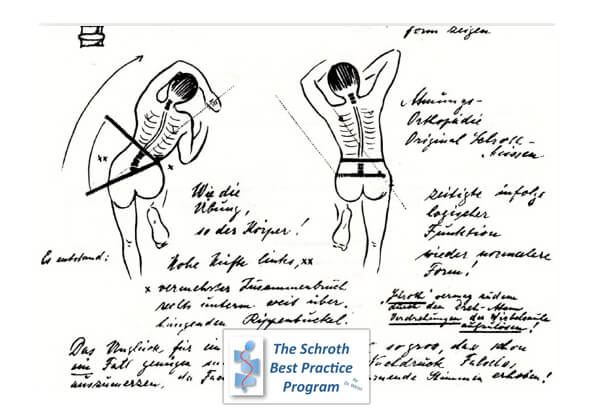 form zeigen
Atmungs-
Orthopädie
Original Schroth-
Meissen
Wie die
Übung,
so der Körper!
zeitigte infolge
logischer
Funktion
wieder normalere
Form!
Es entstand:
Hohe Hüfte links, xx
x vermehrter Zusammenbruch
rechts unterm weit über-
hängenden Rippenbuckel.
"Schroth" vermag zudem
durch den Dreh-Atem
Verdrehungen der Wirbelsäule
aufzulösen!
xx
x
Das Unglück für ein so gross, das schon
ein Fall genügen Nachdruck Falsches
auszumerzen, da Stimmen erhoben!
The Schroth
Best Practice
Program
by
Dr. Weiss